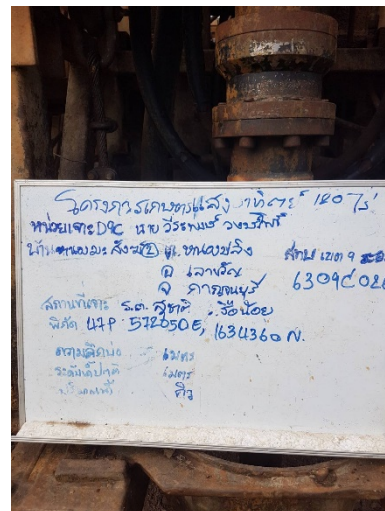 โครงการเกษตรแสงอาทิตย์ 120 ไร่
หน่วยเจาะ D9C นาย วีระพงษ์
บ้านหนองมะสังข์ (2) ต. หนองปลิง สทบ เขต 9
อ เลาขวัญ
จ กาญจนบุรี
สถานที่เจาะ ร.ต. สุชาติ เรือน้อย
พิกัด 47P 572050E, 1634360 N.
ความลึกบ่อ เมตร
ระดับน้ำปกติ เมตร
ปริมาณน้ำ คิว